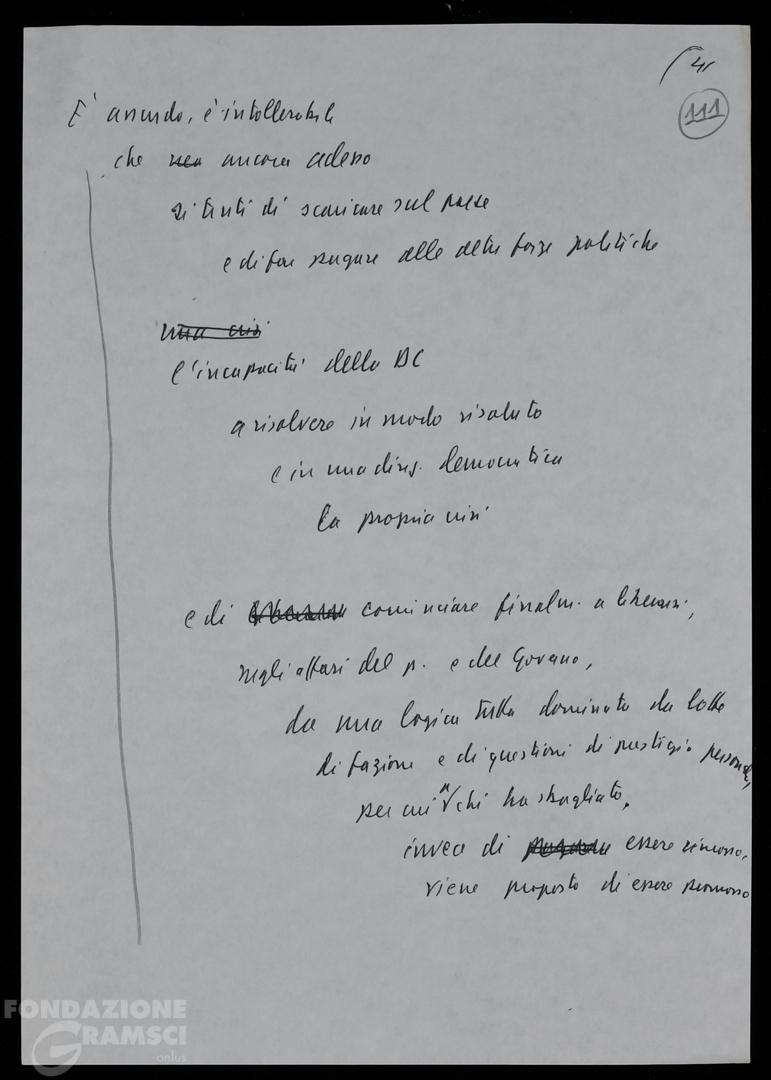 41
111
E' assurdo, è intollerabile
che ancora adesso
si tenti di scaricare sul paese
e di far pagare alle altre forze politiche
una crisi
l'incapacità della DC
a risolvere in modo risoluto
e in una direz. democratica
la propria crisi
e di cominciare finalm. a liberarsi,
negli affari del p. e del Governo,
da una logica tutta dominata da lotte
di fazione e di questioni di prestigio personale,
per cui chi ha sbagliato,
invece di essere rimosso,
viene proposto di essere promosso
FONDAZIONE
GRAMSCI
onlus